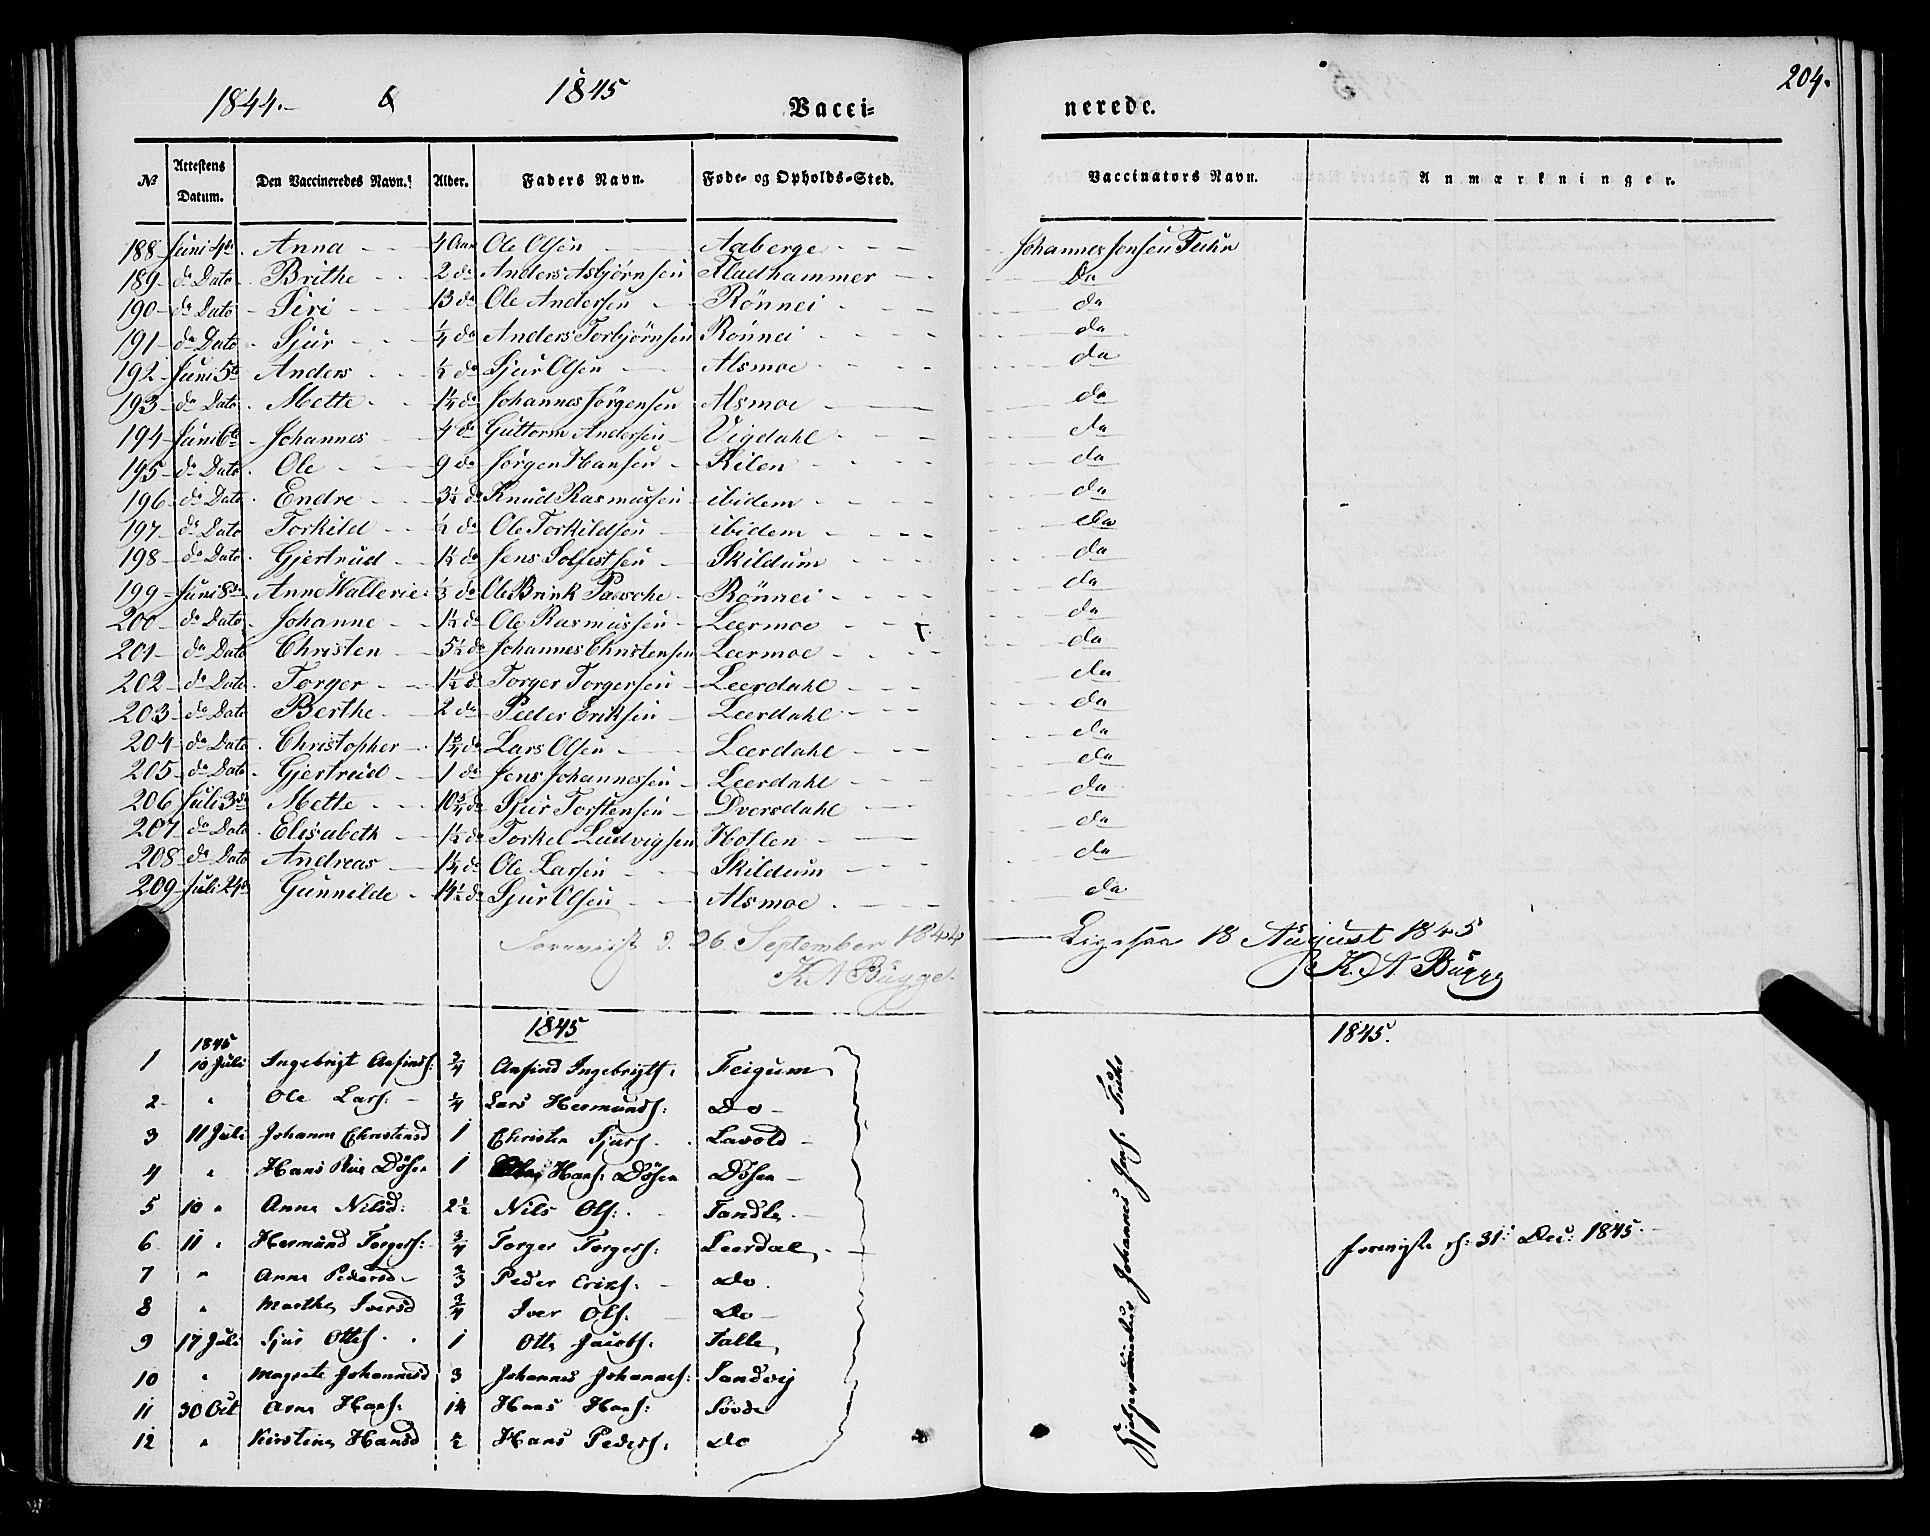 1844. & 1845 Vacci- nerede. 204.
No Attestens Datum. Den Vaccineredes Navn. Alder. Faders Navn. Føde- og Opholds-Sted. Vaccinators Navn. Anmærkninger.
188 Juni 4de Anna 4 Aar Ole Olsen Aaberge Johannes Jensen Fuhr
189 do Dato Brithe 2 do Anders Asbjørnsen Fladhammer Do
190 do Dato Siri 13 do Ole Andersen Rönnei do
191 do Dato Sjur 1/4 do Anders Torbjørnsen Rönnei do
192 Juni 5te Anders 1/2 do Sjur Olsen Alsmoe do
193 do Dato Mette 1 1/4 do Johannes Jörgensen Alsmoe do
194 Juni 6te Johannes 4 do Guttorm Andersen Vigdahl do
195 do Dato Ole 9 do Jörgen Hansen Kilen do
196 do Dato Endre 3 1/2 do Knud Rasmussen ibidem do
197 do Dato Torkild 1/2 do Ole Torkildsen ibidem do
198 do Dato Gjertrud 1 1/2 do Jens Solfestsen Skildum do
199 Juni 8de Anne Wallerie 1/3 do Ole Brink Paasche Rönnei do
200 do Dato Johanne 1 1/2 do Ole Rasmussen Leermoe do
201 do Dato Christen 5 1/2 do Johannes Christensen Leermoe do
202 do Dato Torger 1 1/2 do Torger Torgersen Leerdahl do
203 do Dato Berthe 2 do Peder Eriksen Leerdahl do
204 do Dato Christopher 1 3/4 do Lars Olsen Leerdahl do
205 do Dato Gjertrud 1 do Jens Johannessen Leerdahl do
206 Juli 3die Mette 10 3/4 do Sjur Torstensen Dversdahl do
207 do Dato Elisabeth 1 1/2 do Torkel Ludvigsen Hollen do
208 do Dato Andreas 1 1/4 do Ole Larsen Skildum do
209 Juli 24de Gunnilde 14 1/2 do Sjur Olsen Alsmoe do
Forevist d. 26 September 1844 Ligesaa 18 August 1845
K A Bugge. K. A Bugge
1845 1845.
1845
1 10 Juli Ingebrigt Anfinds: 3/4 Anfind Ingebrigts: Feigum
2 " Ole Lars: 1/4 Lars Hermunds: Do
3 11 Juli Johanne Christensd 1 Christen Sjurs. Lavold
4 " Hans Döhen 1 Hans: Döhen Döhen
5 10 " Anna Nilsd: 2 1/2 Nils Ols: Tandle
6 11 " Hermund Torgers: 3/4 Torger Torgers: Leerdal
7 " Anna Pedersd 2/3 Peder Eriks: do
8 " Marthe Iversd 3/4 Iver Ols: Do
9 17 Juli Sjur Ottes. 1 Otte Jacobs: Talle
10 " Magrete Johannesd 3 Johannes Johannes: Sandvig
11 30 Oct Arne Hans: 14 Hans Hans: Sövde
12 " Kirstine Hansd 1/2 Hans Peders: do
Hjelpevaccinateur Johannes Jens: Fuhr
foreviste d: 31: Dec: 1845.